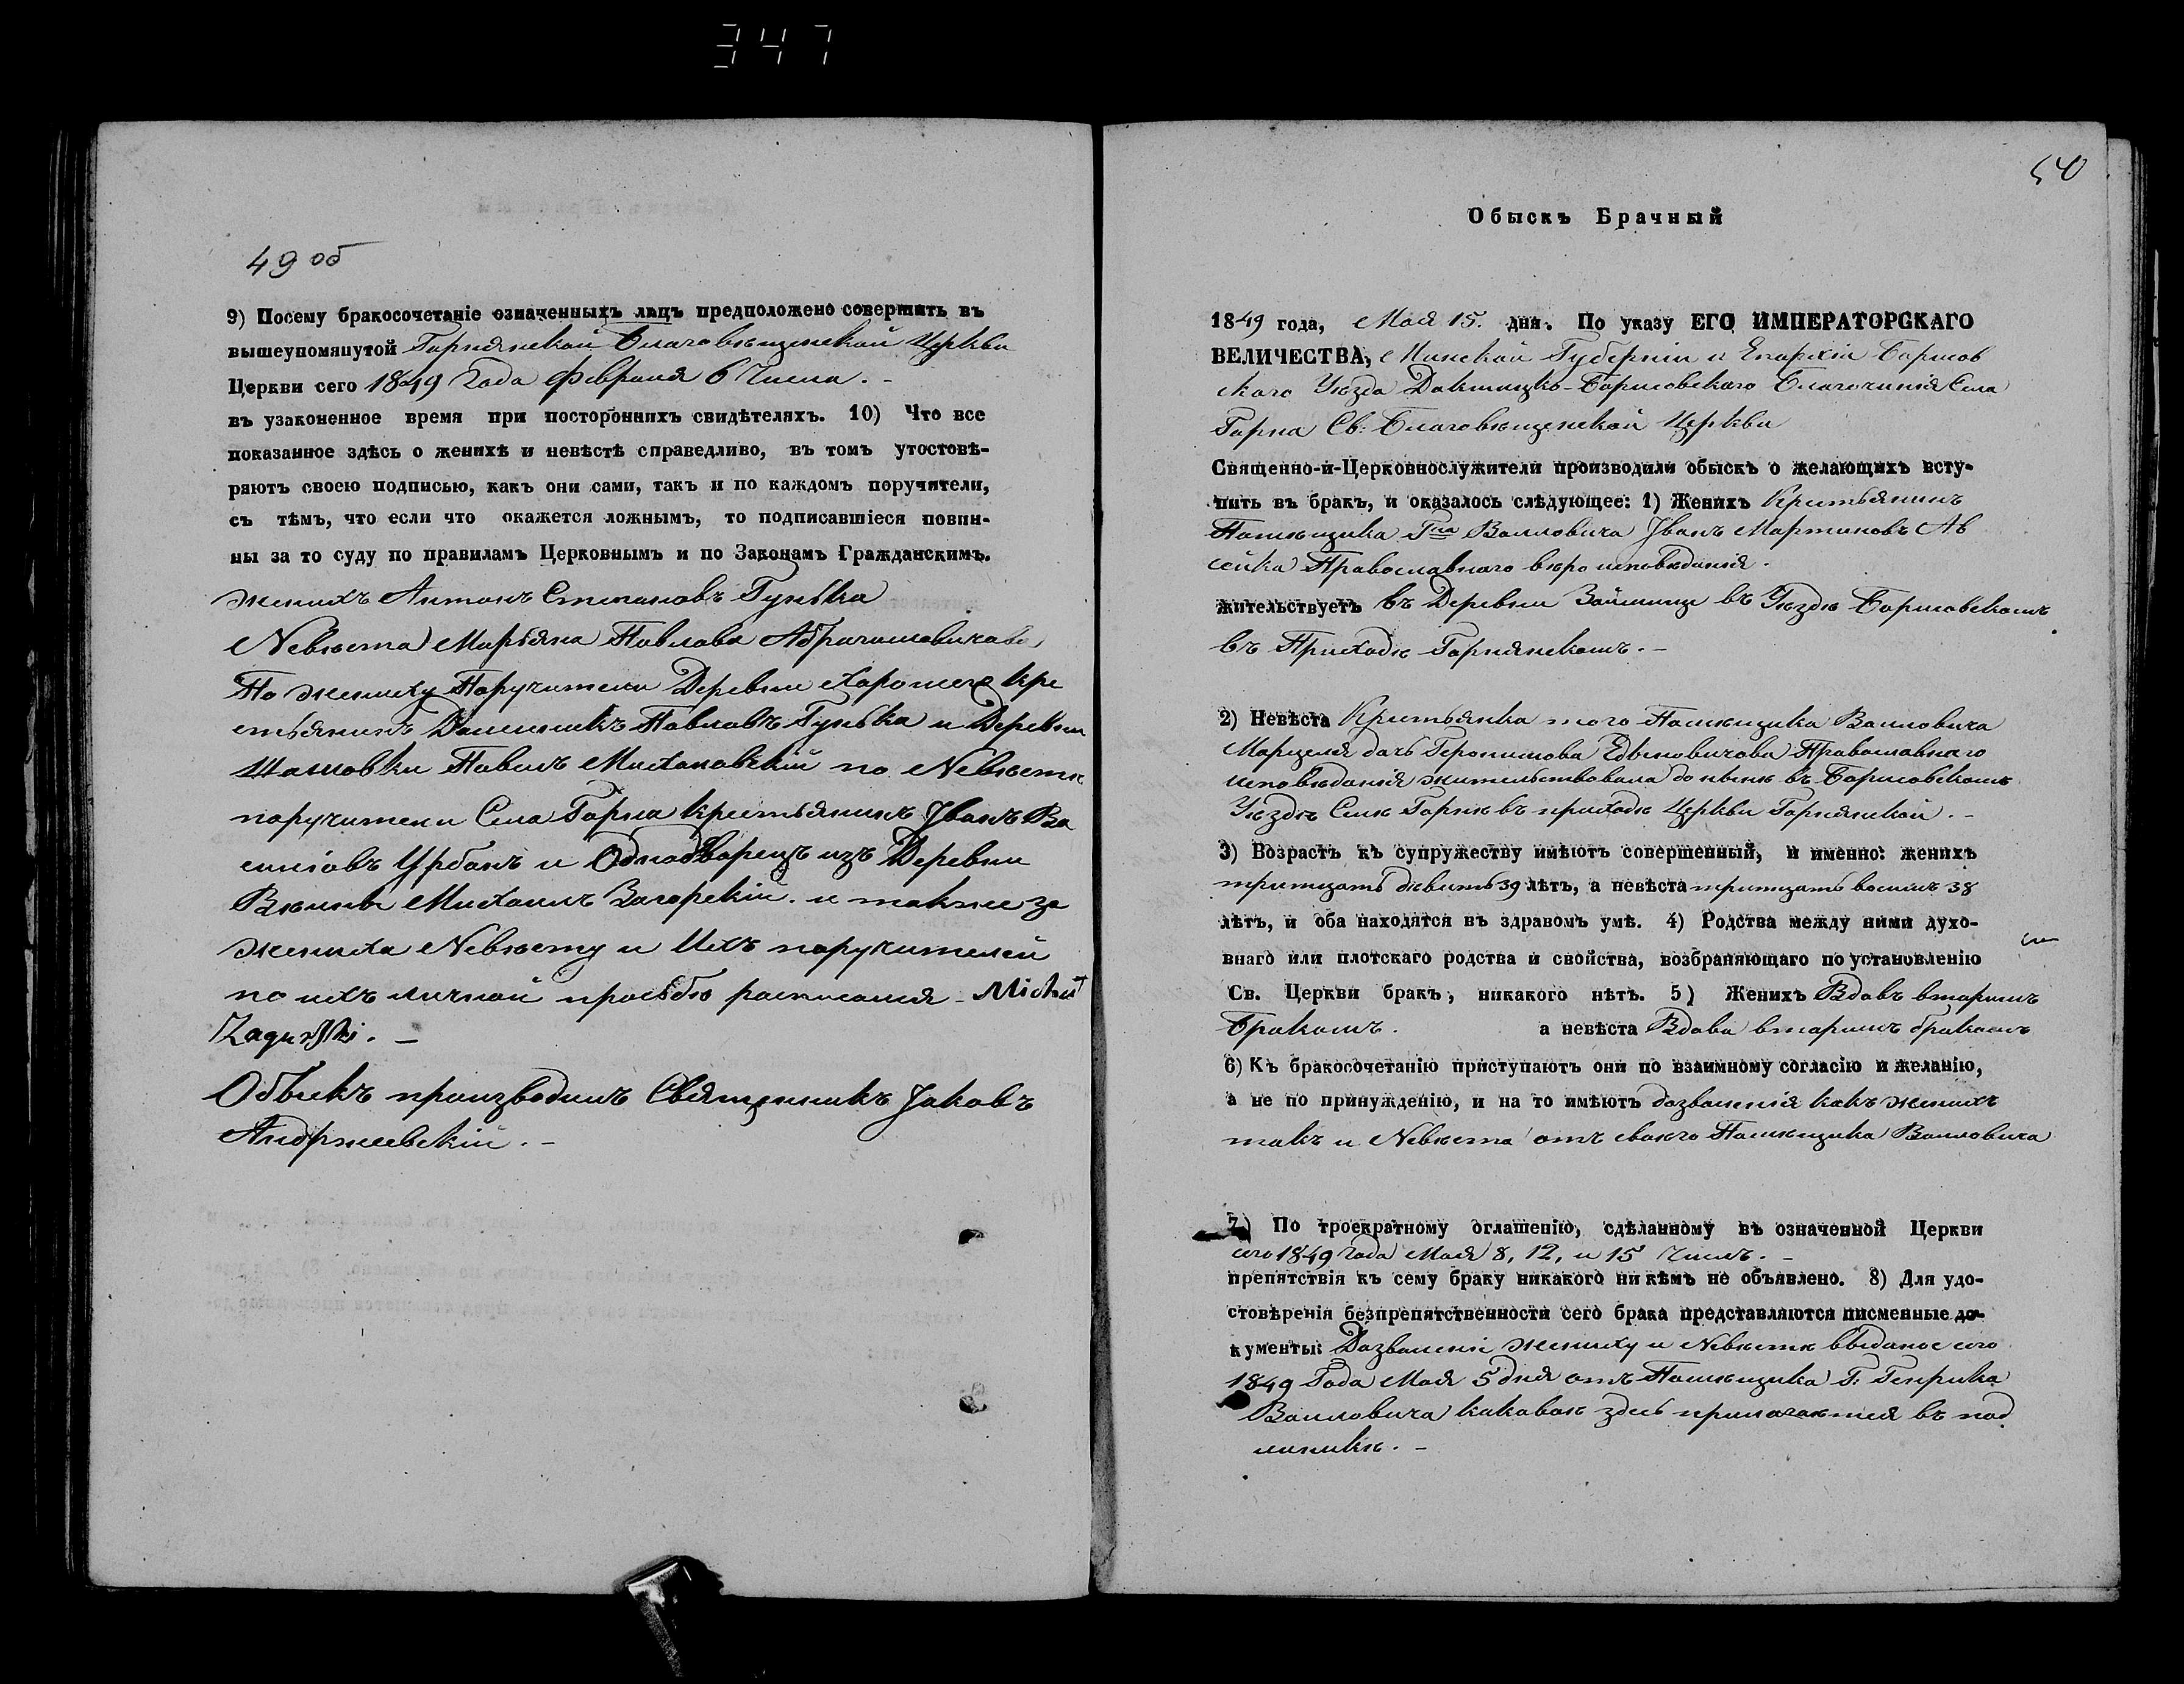 347
49 об
9) Посему бракосочетаніе означенныхъ лицъ предположено совершить въ
вышеупомянутой Горнянской Благовѣщенской Церкви
Церкви сего 1849 Года Февраля 6 Числа. -
въ узаконенное время при постороннихъ свидѣтеляхъ. 10) Что все
показанное здѣсь о женихѣ и невѣстѣ справедливо, въ томъ утостовѣ-
ряютъ своею подписью, какъ они сами, такъ и по каждомъ поручители,
съ тѣмъ, что если что окажется ложнымъ, то подписавшіеся повин-
ны за то суду по правиламъ Церковнымъ и по Законамъ Гражданскимъ.
женихъ Антонъ Степановъ Гунька
Nевѣста Марьяна Павлова
По жениху Поручители Деревни Хорошего Кре
стьянинъ Доминикъ Павловъ Гунька и Деревни
Шамовки Павелъ Михаловскій по Nевѣстѣ
поручители Села Горна Крестьянинъ Jванъ Ва
силіовъ Урбанъ и Однодворецъ изъ Деревни
Михаилъ Загорскій. и также за
жениха Nевѣсту и Ихъ поручителей
по ихъ личной просьбѣ росписался - Michał
Zagurski. -
Обыскъ производилъ Священникъ Jаковъ
Андржеевскій. -
50
Обыскъ Брачный
1849 года, Мая 15. дня. По указу ЕГО ИМПЕРАТОРСКАГО
ВЕЛИЧЕСТВА, Минской Губерніи и Епархіи Борисов
ского Уѣзда Докшицко-Борисовскаго Благочинія Села
Горна Св: Благовѣщенской Церкви
Священно-и-Церковнослужители производили обыскъ о желающихъ всту-
пить въ бракъ, и оказалось слѣдующее: 1) Женихъ Крестьянинъ
Помѣщика Гна Воловича Jванъ Мартиновъ Ав
сейка Православнаго вѣро исповѣданія.
жительствуетъ въ Деревни Займище въ Уѣздѣ Борисовскомъ
въ Приходѣ Горнянскомъ. -
2) Невѣста Крестьянка того Помѣщика Воловича
Марцеля дочь Геронимова Православнаго
исповѣданія жительствовала до нынѣ въ Борисовскомъ
Уѣздѣ Селѣ Горнѣ въ приходѣ Церкви Горнянской. -
3) Возрастъ къ супружеству имѣютъ совершенный, и именно: женихъ
тритцать девить 39 лѣтъ, а невѣста тритцать восимъ 38
лѣтъ, и оба находятся въ здравомъ умѣ. 4) Родства между ними духо-
внаго или плотскаго родства и свойства, возбраняющаго по установленію
Св. Церкви бракъ, никакого нѣтъ. 5) Женихъ Вдовъ вторимъ
Бракомъ. а невѣста Вдова вторимъ бракомъ
6) Къ бракосочетанію приступаютъ они по взаимному согласію и желанію,
а не по принужденію, и на то имѣютъ дозволенія какъ женихъ
такъ и Nевѣста отъ своего Помѣщика Воловича
7) По троекратному оглашенію, сдѣланному въ означенной Церкви
сего 1849 Года Мая 8, 12, и 15 Числъ. -
препятствія къ сему браку никакого ни кѣмъ не объявлено. 8) Для удо-
стовѣренія безпрепятственности сего брака представляются писменные до-
кументы: Дозволеніе жениху и Nевѣстѣ выданое сего
1849 Года Мая 5 дня отъ Помѣщика Г: Генрика
Воловича каковое здесь прилагается въ под
линикѣ. -